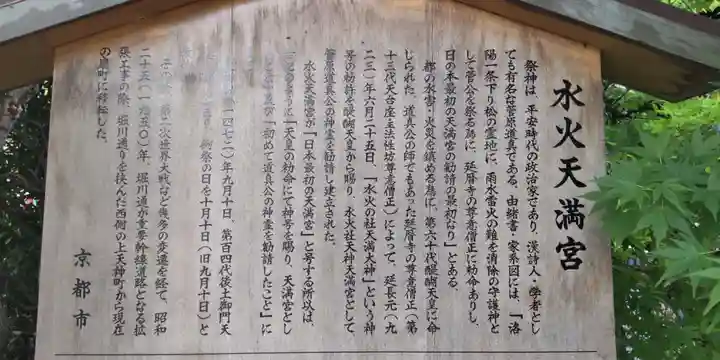 水火天満宮
祭神は、平安時代の政治家であり、漢詩人・学者とし
ても有名な菅原道真である。由緒書・家系図には、「洛
陽一条下り松の霊地に、雨水雷火の難を消除の守護神と
して菅公を祭る為に、延暦寺の尊意僧正に勅命ありし、
日の本最初の天満宮の勧請の最初なり」とある。
都の水害・火災を鎮める為に、第六十代醍醐天皇に命
じられた、道真公の師でもあった延暦寺の尊意僧正(第
十三代天台座主法性坊尊意僧正)によって、延長元(九
二三)年六月二十五日、「水火の社天満大神」という神
号の勅許を醍醐天皇から賜り、水火社天神天満宮として
菅原道真公の神霊を勧請し建立された。
水火天満宮が「日本最初の天満宮」と号する所以は、
「天皇の勅命にて神号を賜り、天満宮とし
「初めて道真公の神霊を勧請したこと」に
四七二)年九月十日、第百四代後土御門天
例祭の日を十月十日(旧九月十日)と
第二次世界大戦など幾多の変遷を経て、昭和
二十五(一九五〇)年、堀川通が重要幹線道路となる拡
張工事の際、堀川通りを挟んだ西側の上天神町から現在
の扇町に移転した。
京都市